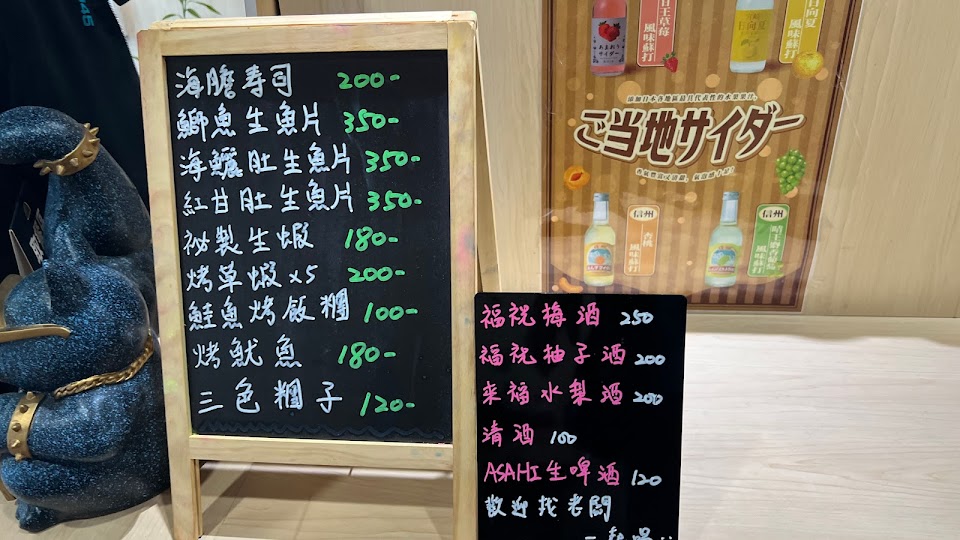 海膽寿司 200-
鰤魚生魚片 350-
海鱺肚生魚片 350-
紅甘肚生魚片 350-
祕製生蝦 180-
烤草蝦x5 200-
鮭魚烤飯糰 100-
烤魷魚 180-
三色糰子 120-
福祝梅酒 250
福祝柚子酒 200
来福水梨酒 200
清酒 100
ASAHI生啤酒 120
歡迎找老闆
甘王草莓
風味蘇打
あまおう
サイダー
日向夏
風味蘇打
ご当地サイダー
信州
杏桃
風味蘇打
信州
晴王麝香葡萄
風味蘇打